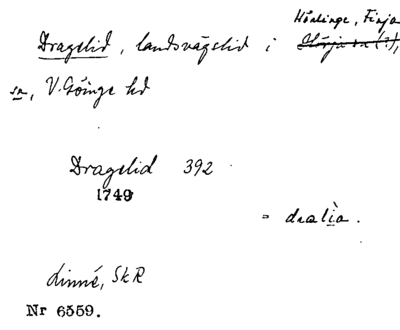 Hörlinge, Finja
Dragelid, landsvägslid i Hörja sn (?),
sn, V. Göinge hd
Dragelid 392
1749
= dralia.
Linné, SkR
Nr 6559.